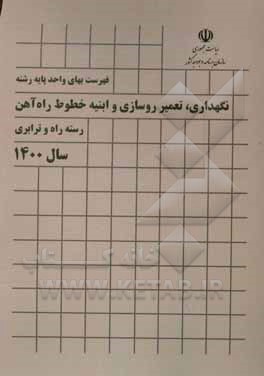 ریاست جمهوری
سازمان برنامه و بودجه کشور
فهرست بهای واحد پایه رشته
نگهداری، تعمیر روسازی و ابنیه خطوط راه‌آهن
رسته راه و ترابری
سال ۱۴۰۰
خانه کتاب
WWW.KETAB.IR